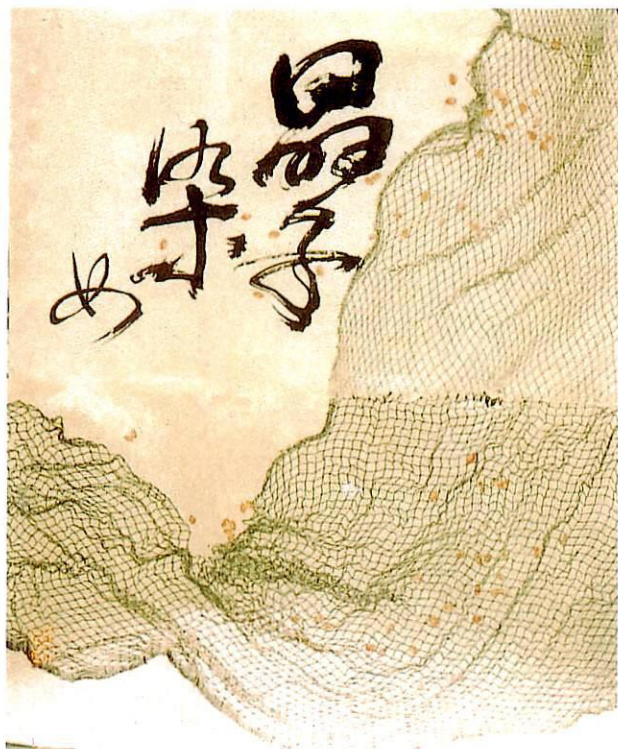 晶子
染め